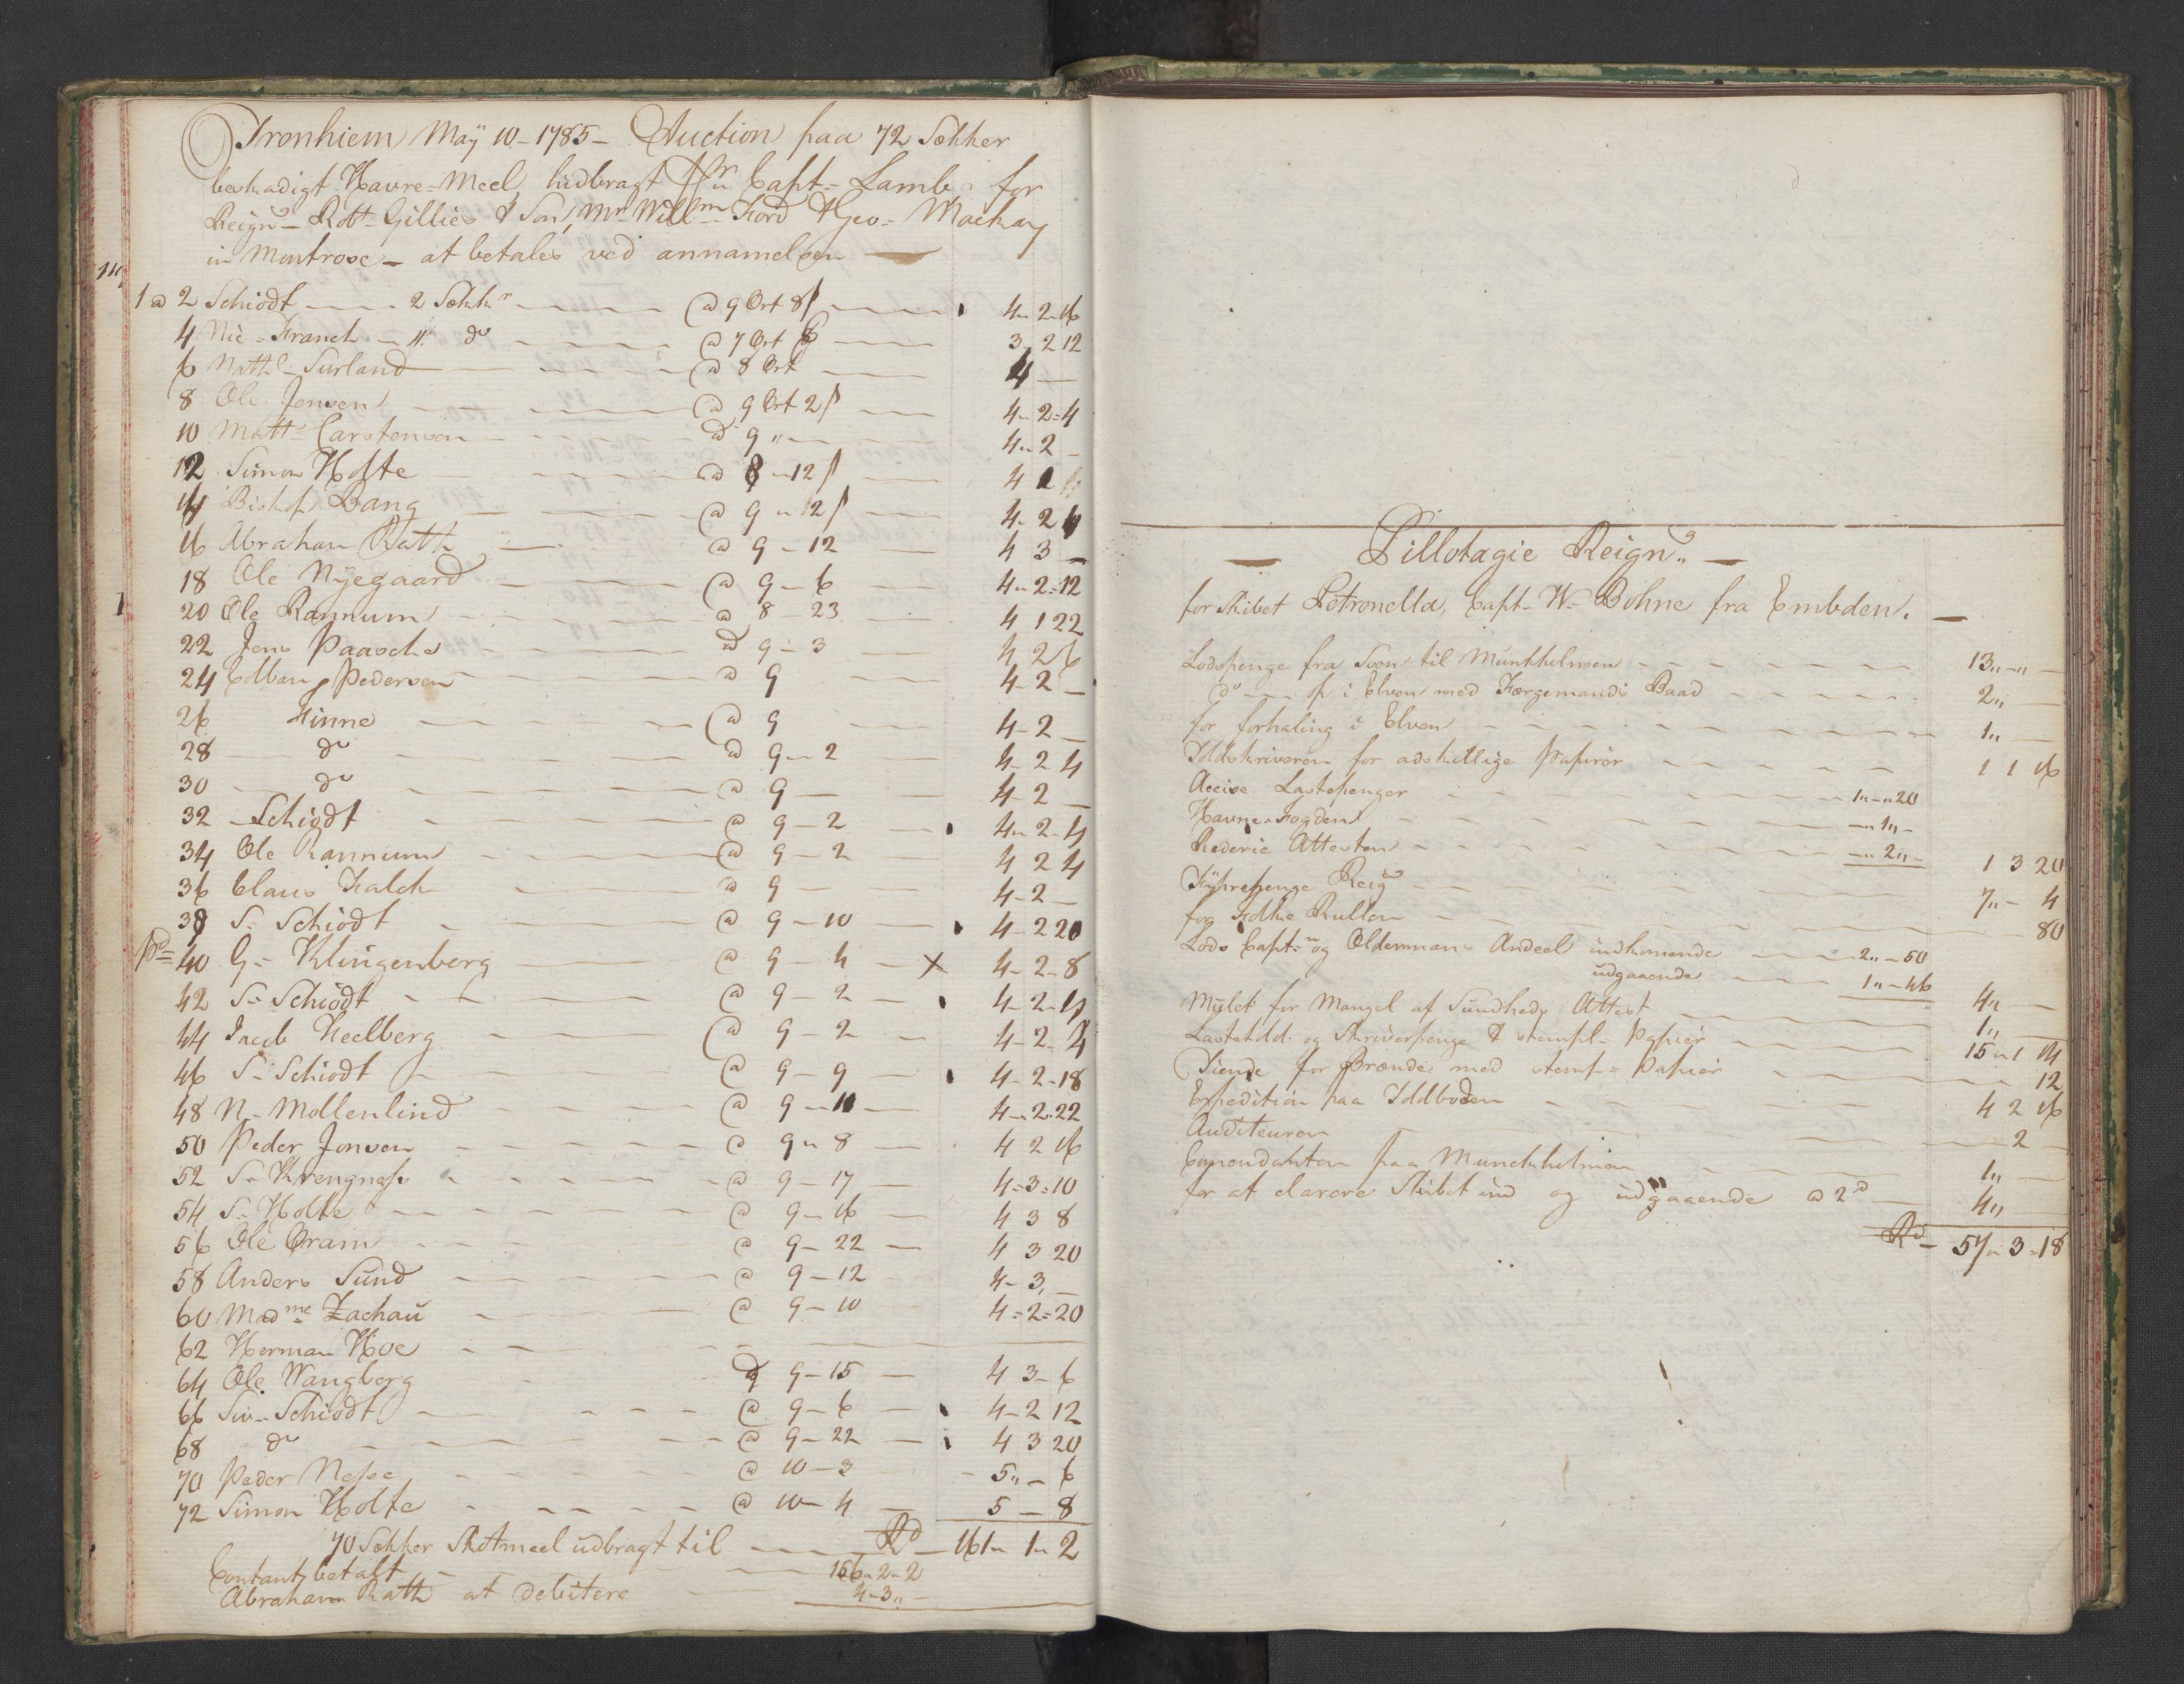 Tronhiem Maÿ 10 - 1785 - Auction paa 72 Sækker
beskadigt Havre=Meel, hidbragt pr Capt= Lamb for
Reign= Robt= Gillies & Son, Mr Willm Ford & Geo= Mackay
in Montrose - at betales ved annamelsen
1 @ 2 Schiødt 2 Sækkr @ 9 Ort 8 ß 4 - 2 - 16
4 Nic= Franch 11 do @ 7 Ort 3 " 2 12
6 Natl= Surland @ 8 Ort 4 -
8 Ole Jensen @ 9 Ort 2 ß 4 - 2 = 4
10 Matt= Carstensen @ 9 " - 4 " 2 -
12 Simon Holte @ 8 - 12 ß 4 1
14 Bishop Bang @ 9 " 12 ß 4 - 2
16 Abraham Rath @ 9 - 12 4 3 -
18 Ole Nÿegaard @ 9 - 6 4 " 2 = 12
20 Ole Rannum @ 8 23 4 1 22
22 Jens Paasche @ 9 - 3 4 2 6
24 Pedersen @ 9 4 - 2 -
26 Finne @ 9 4 - 2 -
28 do @ 9 - 2 4 - 2 4
30 do @ 9 - 4 - 2 -
32 Schiødt @ 9 - 2 4 " 2 - 4
34 Ole Rannum @ 9 - 2 4 2 4
36 Claus Falck @ 9 - 4 - 2 -
38 S= Schiødt @ 9 - 10 4 - 2 20
40 G= Klingenberg @ 9 - 4 X 4 - 2 - 8
42 S= Schiødt @ 9 - 2 4 - 2 - 4
44 Jacob Heelberg @ 9 - 2 4 - 2 - 4
46 S= Schiødt @ 9 - 9 4 - 2 - 18
48 N= Mollenlind @ 9 - 11 4 - 2 - 22
50 Peder Jonsen @ 9 " 8 4 2 16
52 S= Krengnæss @ 9 - 17 4 = 3 = 10
54 S= Holte @ 9 - 16 4 3 8
56 Ole Bram @ 9 - 22 4 3 20
58 Anders Sund @ 9 - 12 4 - 3 -
60 Madme Zachau @ 9 - 10 4 = 2 = 20
62 Herman Hoe
64 Ole Wangberg @ 9 - 15 4 3 - 6
66 Siv= Schiødt @ 9 - 6 4 - 2 12
68 do @ 9 - 22 4 3 20
70 Peder @ 10 - 3 5 " - 6
72 Simon Holte @ 10 - 4 5 - 8
70 Sækker Skotmeel udbragt til Rd 161 " 1 " 2
Contant betalt 156 " 2 - 2
Abraham Rath at debitere 4 - 3 " -
Pillotagie Reign"
for Skibet Petronella, Capt= W= Bohne fra Embden.
Lodspenge fra Soon til Munkholmen 13 " - " -
do op i Elven med Færgemands Baad 2 "
for forhaling i Elven 1 "
Toldskriveren for adskillige Papirer 1 1 16
Accise Lastepenger 1 " - " 20
Havne=Fogden - " 1 " -
Rederie Attesten - " 2 " - 1 3 20
Fÿhrepenge Reig 7 " - 4
Rullen 80
Lods Capt=n og Oldermans Andeel indkomende 2 " - 50
udgaaende 1 " - 46 4 "
Mulct for Mangel af Sundheds Attest 1 "
Lastetold og Skriverpenge & stempl= Papiir 15 " 1 14
Tiende for Brænde med stemp= Papiir 12
Expedition paa Toldboden 4 2 16
Auditeuren 2
Comendanten paa Munckholmen 1 "
for at clarere Skibet ind og udgaaende @ 2 d 4 "
Rd 57 " 3 - 18